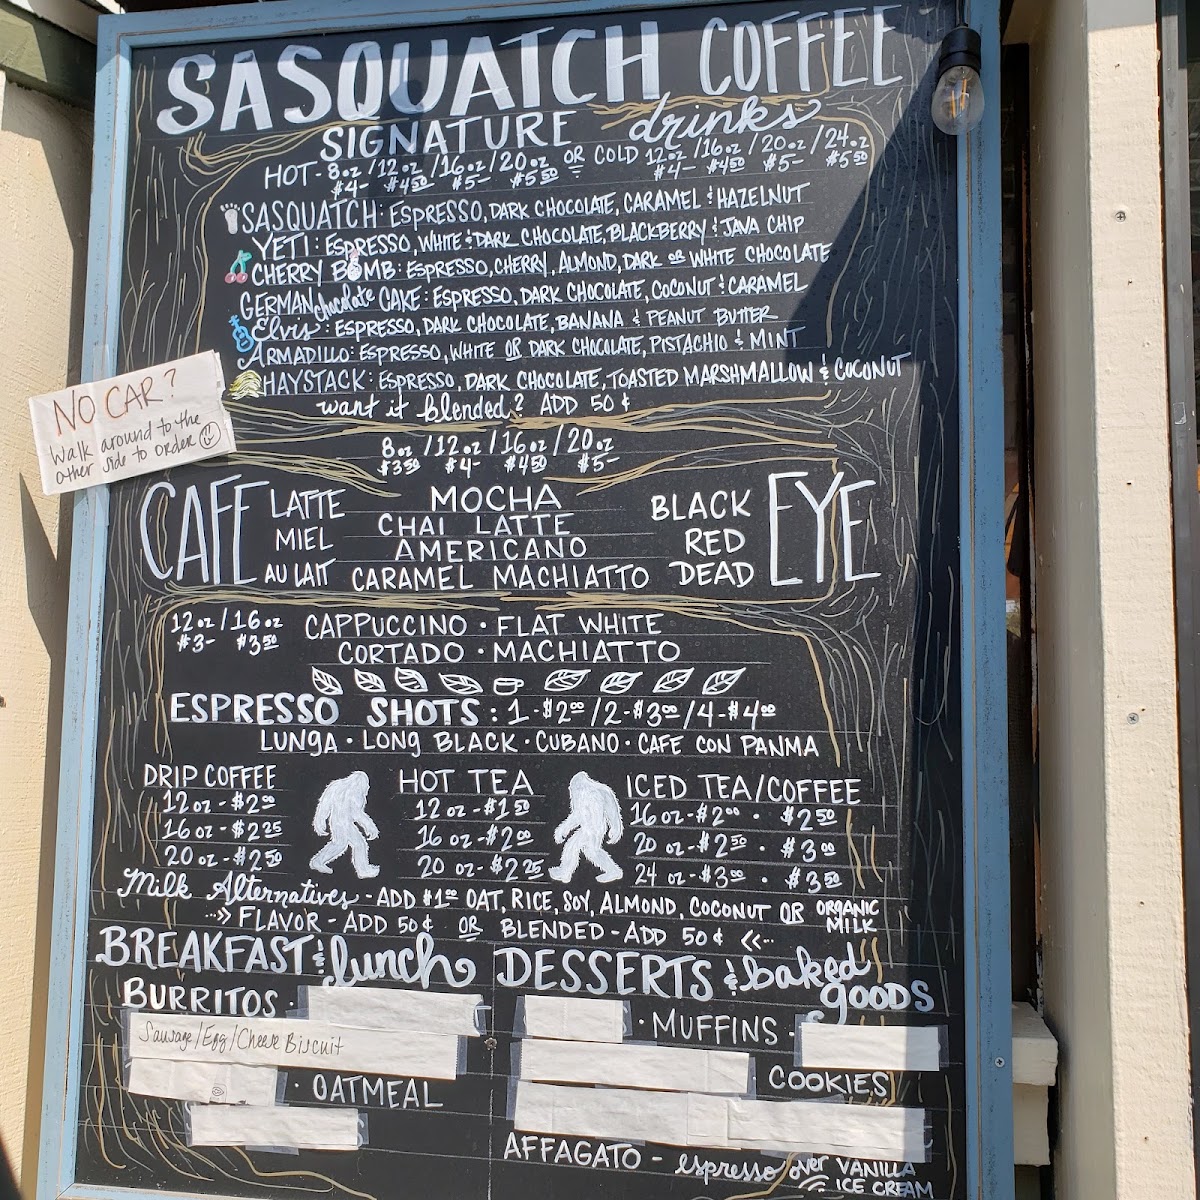 SASQUATCH COFFEE
SIGNATURE drinks
HOT - 8oz / 12oz / 16oz / 20oz OR COLD 12oz / 16oz / 20oz / 24oz
$4- $4.50 $5- $5.50 $4- $4.50 $5- $5.50
SASQUATCH: ESPRESSO, DARK CHOCOLATE, CARAMEL & HAZELNUT
YETI: ESPRESSO, WHITE & DARK CHOCOLATE, BLACKBERRY & JAVA CHIP
CHERRY BOMB: ESPRESSO, CHERRY, ALMOND, DARK OR WHITE CHOCOLATE
GERMAN chocolate CAKE: ESPRESSO, DARK CHOCOLATE, COCONUT & CARAMEL
Elvis: ESPRESSO, DARK CHOCOLATE, BANANA & PEANUT BUTTER
ARMADILLO: ESPRESSO, WHITE OR DARK CHOCOLATE, PISTACHIO & MINT
HAYSTACK: ESPRESSO, DARK CHOCOLATE, TOASTED MARSHMALLOW & COCONUT
want it blended? ADD 50¢
NO CAR?
Walk around to the
other side to order
8oz / 12oz / 16oz / 20oz
$3.50 $4- $4.50 $5-
CAFE LATTE MOCHA BLACK EYE
MIEL CHAI LATTE RED
AU LAIT AMERICANO DEAD
CARAMEL MACHIATTO
12oz / 16oz CAPPUCCINO · FLAT WHITE
$3- $3.50 CORTADO · MACHIATTO
ESPRESSO SHOTS: 1-$2.00 / 2-$3.00 / 4-$4.00
LUNGA · LONG BLACK · CUBANO · CAFE CON PANMA
DRIP COFFEE
12 oz - $2.00
16 oz - $2.25
20 oz - $2.50
HOT TEA
12 oz - $1.50
16 oz - $2.00
20 oz - $2.25
ICED TEA/COFFEE
16 oz - $2.00 · $2.50
20 oz - $2.50 · $3.00
24 oz - $3.00 · $3.50
Milk Alternatives - ADD $1.00 OAT, RICE, SOY, ALMOND, COCONUT OR ORGANIC MILK
FLAVOR - ADD 50¢ OR BLENDED - ADD 50¢
BREAKFAST & lunch
BURRITOS ·
Sausage/Egg/Cheese Biscuit
· OATMEAL
DESSERTS & baked goods
· MUFFINS -
COOKIES
AFFAGATO - espresso over VANILLA ICE CREAM